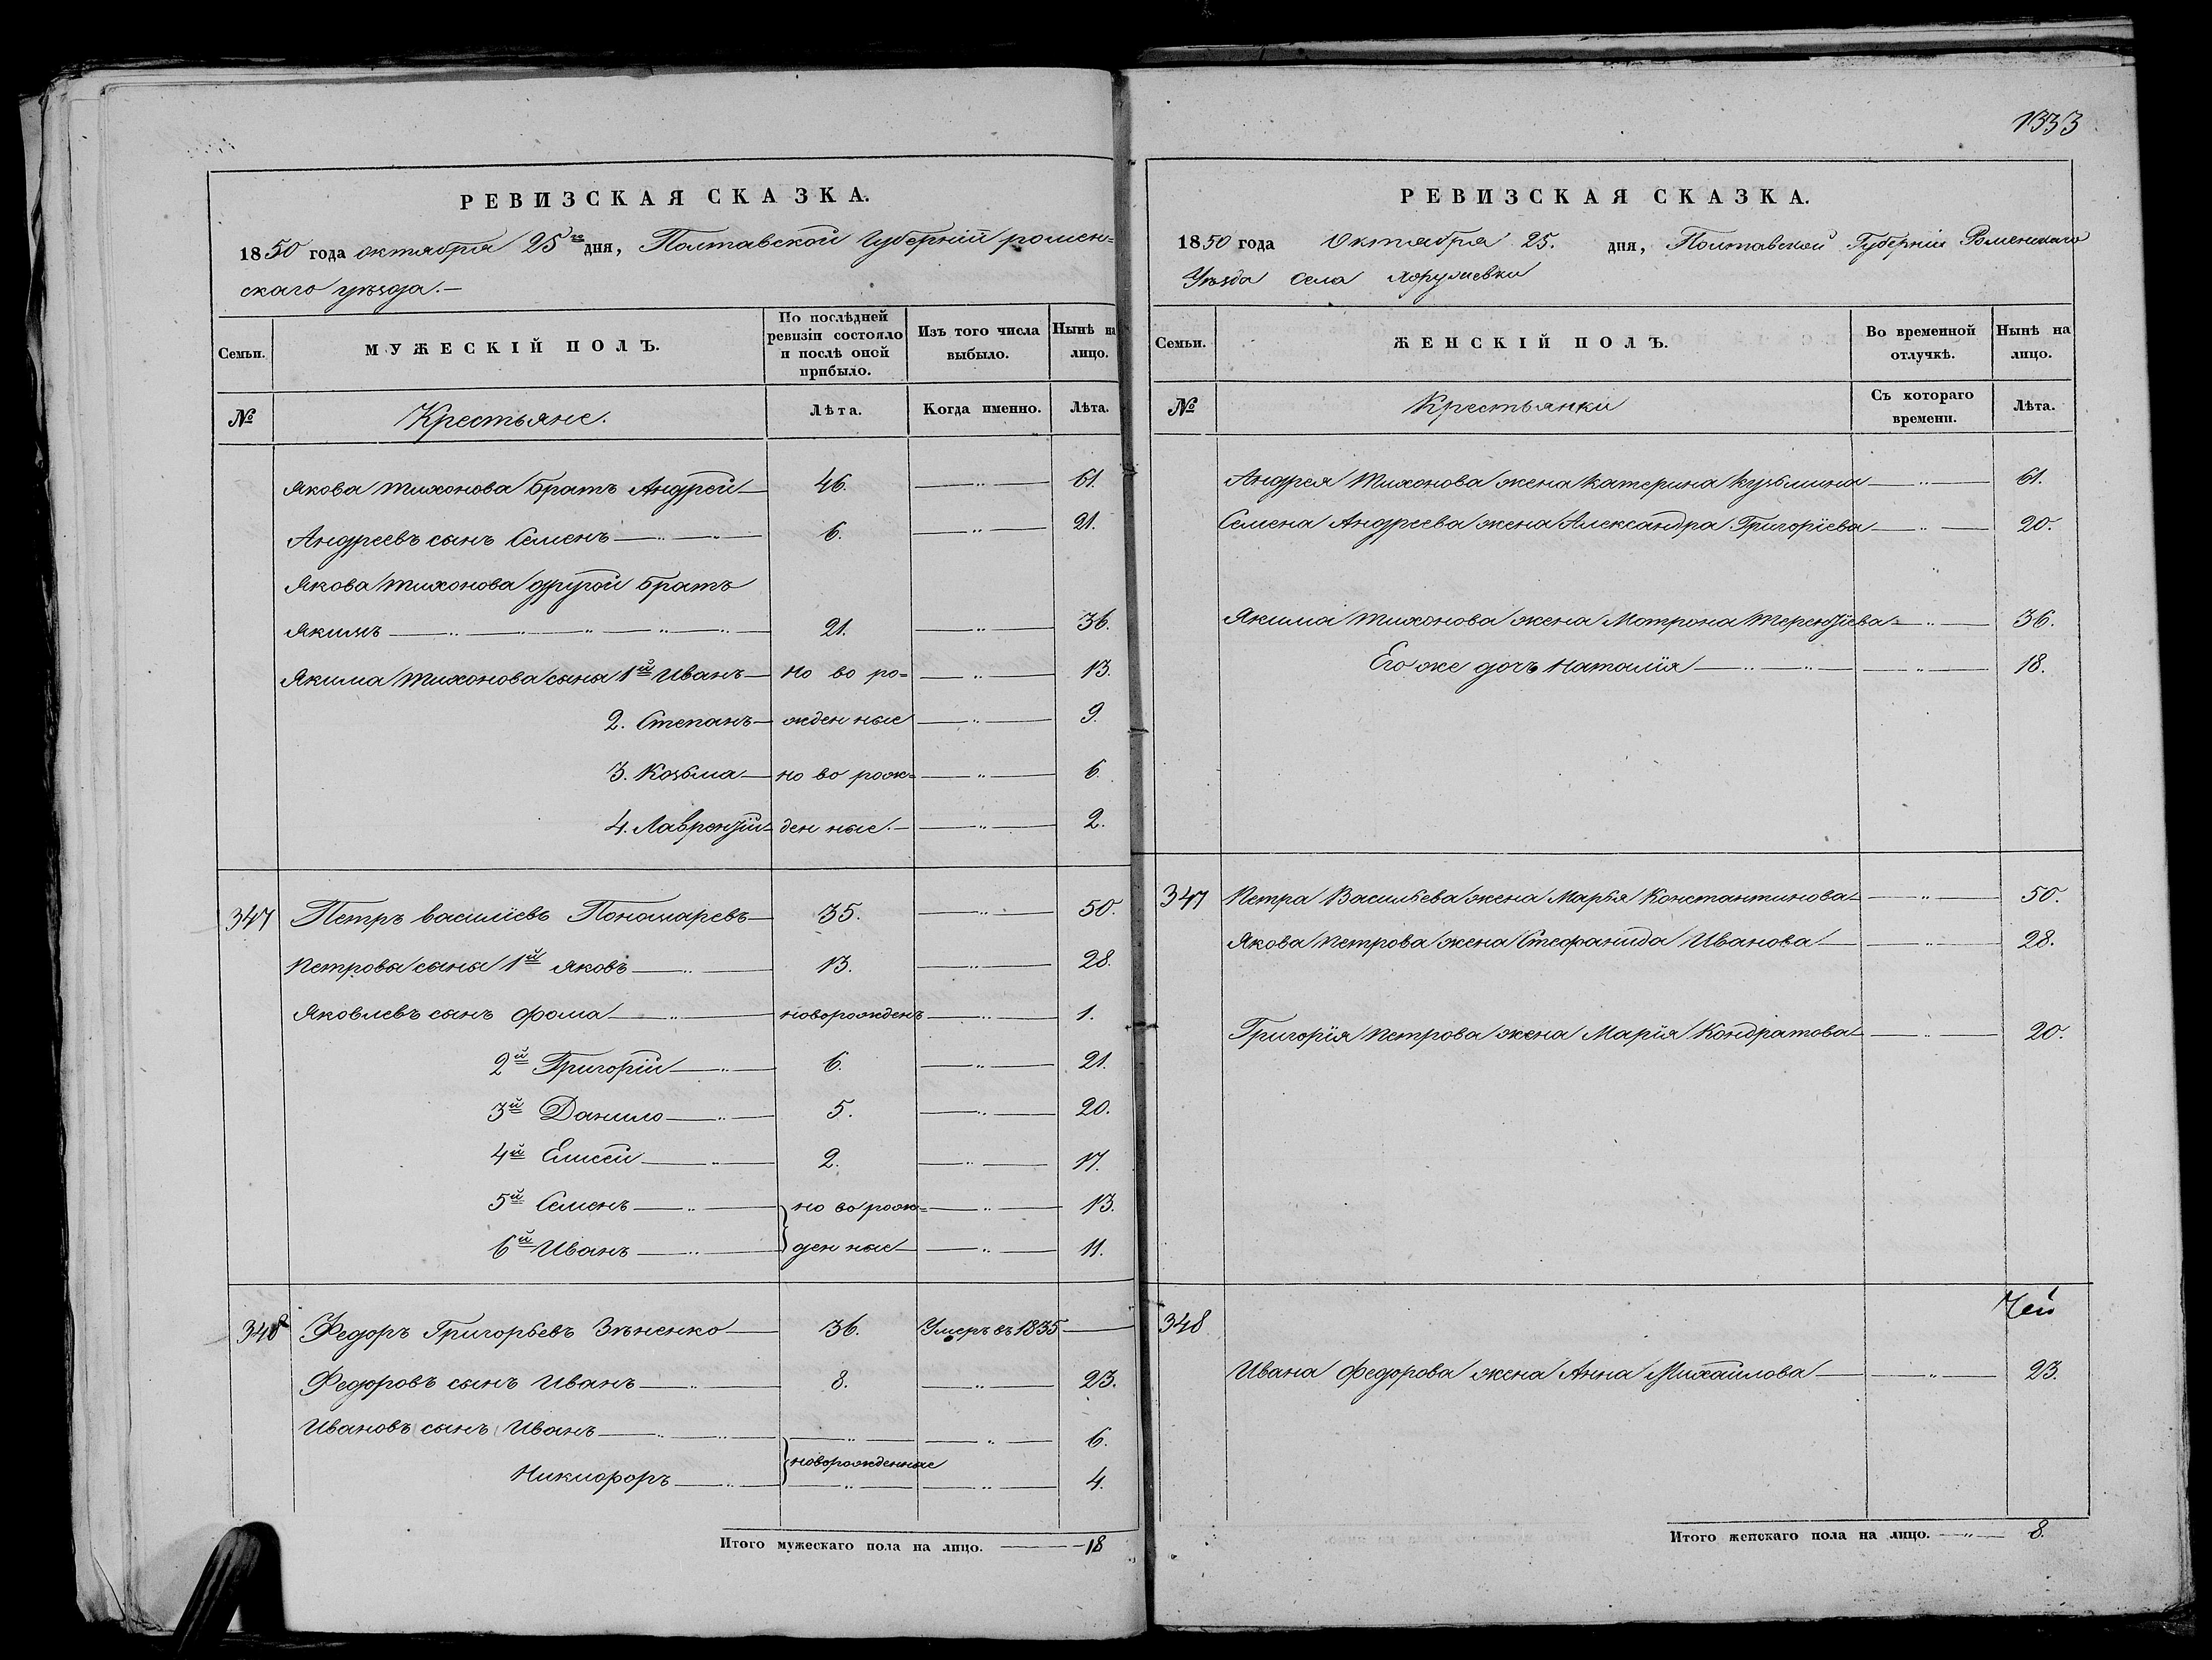 РЕВИЗСКАЯ СКАЗКА.
1850 года октября 25го дня, Полтавской Губерніи ромен=
скаго уѣзда.—
Семьи.
МУЖЕСКІЙ ПОЛЪ.
По послѣдней ревизіи состояло и послѣ оной прибыло.
Изъ того числа выбыло.
Нынѣ на лицо.
№
Крестьяне.
Лѣта.
Когда именно.
Лѣта.
Якова Тихонова братъ Андрей — 46. — „ — 61.
Андреевъ сынъ Семенъ — „ — „ — 6. — „ — 21.
Якова Тихонова другой братъ
Якимъ — „ — „ — „ — „ — „ — 21. — „ — 36.
Якима Тихонова сыны 1й Иванъ — но во ро= — „ — 13.
2. Степанъ — жденные — „ — 9.
3. Козьма — но во рож= — „ — 6.
4. Лаврентій — денные. — „ — 2.
347 Петръ Василіевъ Пономаревъ — 35. — „ — 50.
Петровы сыны 1й Яковъ — „ — 13. — „ — 28.
Яковлевъ сынъ Фома — „ — новорожденъ — „ — 1.
2й Григорій — „ — 6. — „ — 21.
3й Данило — „ — 5. — „ — 20.
4й Елисей — „ — 2. — „ — 17.
5й Семенъ — „ — но во рож= — „ — 13.
6й Иванъ — „ — денные — „ — 11.
348 Федоръ Григорьевъ Зѣненко — 36. Умеръ въ 1835 —
Федоровъ сынъ Иванъ — „ — 8. — „ — 23.
Ивановъ сынъ Иванъ — „ — „ — „ — „ — 6.
новорожденные
Никифоръ — „ — „ — „ — 4.
Итого мужескаго пола на лицо. — 18
1333
РЕВИЗСКАЯ СКАЗКА.
1850 года Октября 25. дня, Полтавской Губерніи Роменскаго
Уѣзда Села
Семьи.
ЖЕНСКІЙ ПОЛЪ.
Во временной отлучкѣ.
Нынѣ на лицо.
№
Крестьянки
Съ котораго времени.
Лѣта.
Андрея Тихонова жена Катерина Кузьмина — „ — 61.
Семена Андреева жена Александра Григоріева — „ — 20.
Якима Тихонова жена Мотрона Терентіева — „ — 36.
Его же дочь Наталія — „ — „ — „ — 18.
347 Петра Васильева жена Марья Константинова — „ — 50.
Якова Петрова жена Стефанида Иванова — „ — 28.
Григорія Петрова жена Марія Кондратова — „ — 20.
348
Ивана Федорова жена Анна Михайлова — „ — 23.
Итого женскаго пола на лицо. — „ — 8.